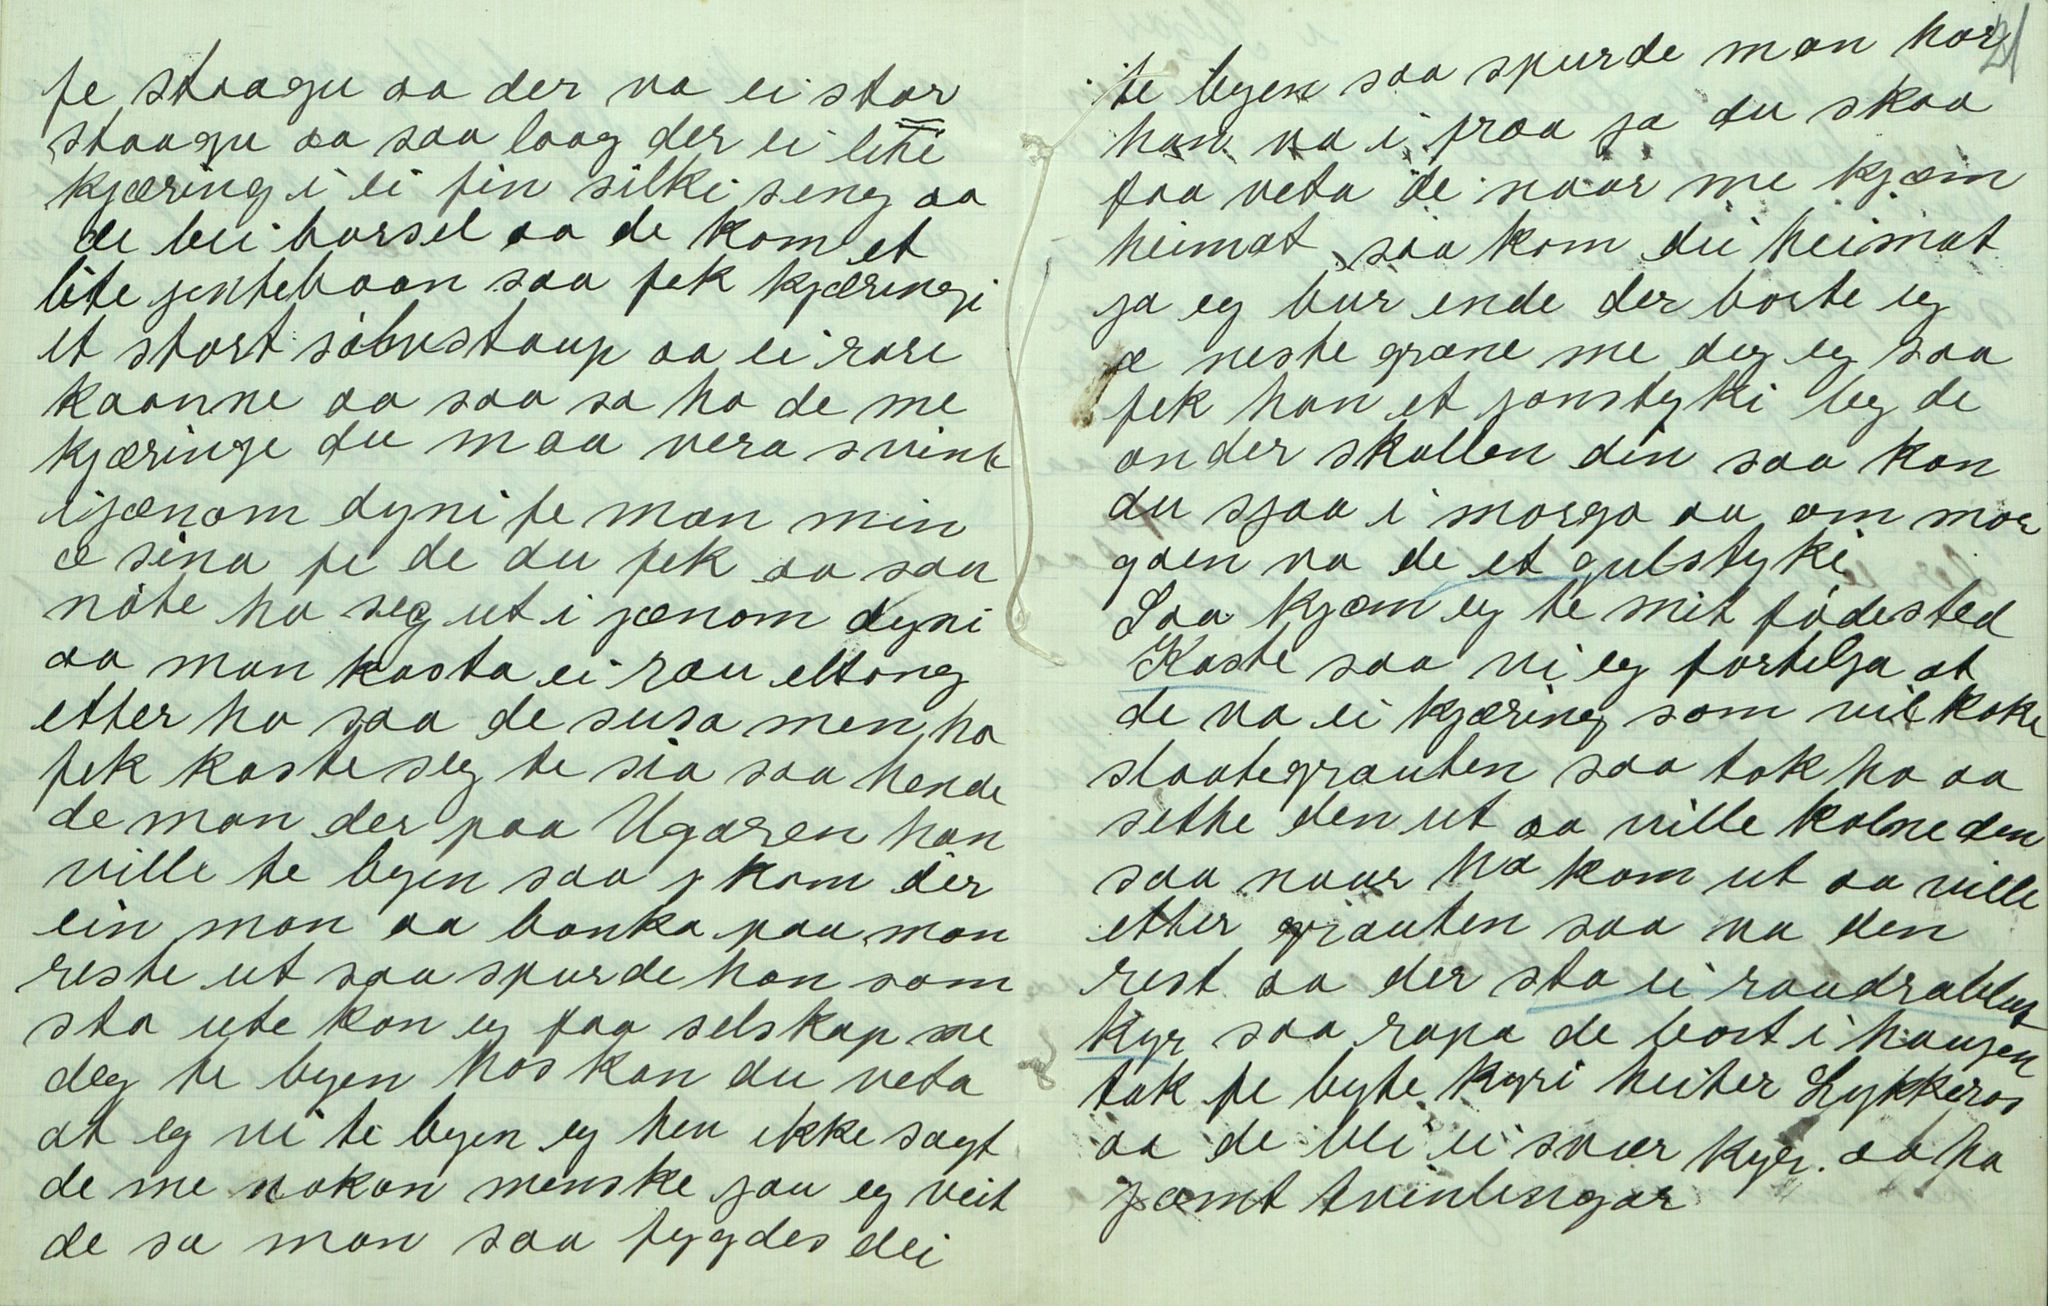 fe staagu aa der va ei stor
staagu aa saa laag der ei liti
kjæring i ei fin silki seng aa
de blei barsel aa de kom et
lite jentebaan saa fek kjæringi
et stort sölvstaup aa ei rare
kaanne aa saa sa ho de me
kjæringe du maa vera svint
ijænom dyni fe man min
æ sina fe de du fek aa saa
nöte ho seg ut i jænom dyni
aa man kasta ei rau eltong
etter ho saa de susa men ho
fek kaste seg te sia saa hende
de man der paa Ugaren han
ville te byen saa kom der
ein man aa banka paa man
reste ut saa spurde han som
sto ute kan eg faa selskap me
deg te byen hos kan du veta
at eg vi te byen eg hev ikke sagt
de me nokon menske jau eg veit
de sa man saa fygdes dei
21
te byen saa spurde man hor
han va i fraa ja du skaa
faa veta de naar me kjæm
heimat saa kom dei heimat
ja eg bur ende der borte eg
æ neste grane me deg eg saa
fek han et jonstyki leg de
onder skallen din saa kan
du sjaa i morgo aa om mor
gaen va de et gulstyki
Saa kjæm eg te mit födested
Kaste saa vi eg fortelja at
de va ei kjæring som vil koke
slaategrauten saa tok ho aa
sette den ut aa ville kolne den
saa naar ho kom ut aa ville
etter grauten saa va den
rest aa der sto ei raudrablut
kyr saa ropa de bort i haugen
tak fe byte kyri heiter Lykkeros
aa de blei ei svær kyr. aa ho
jæmt tvinlingar